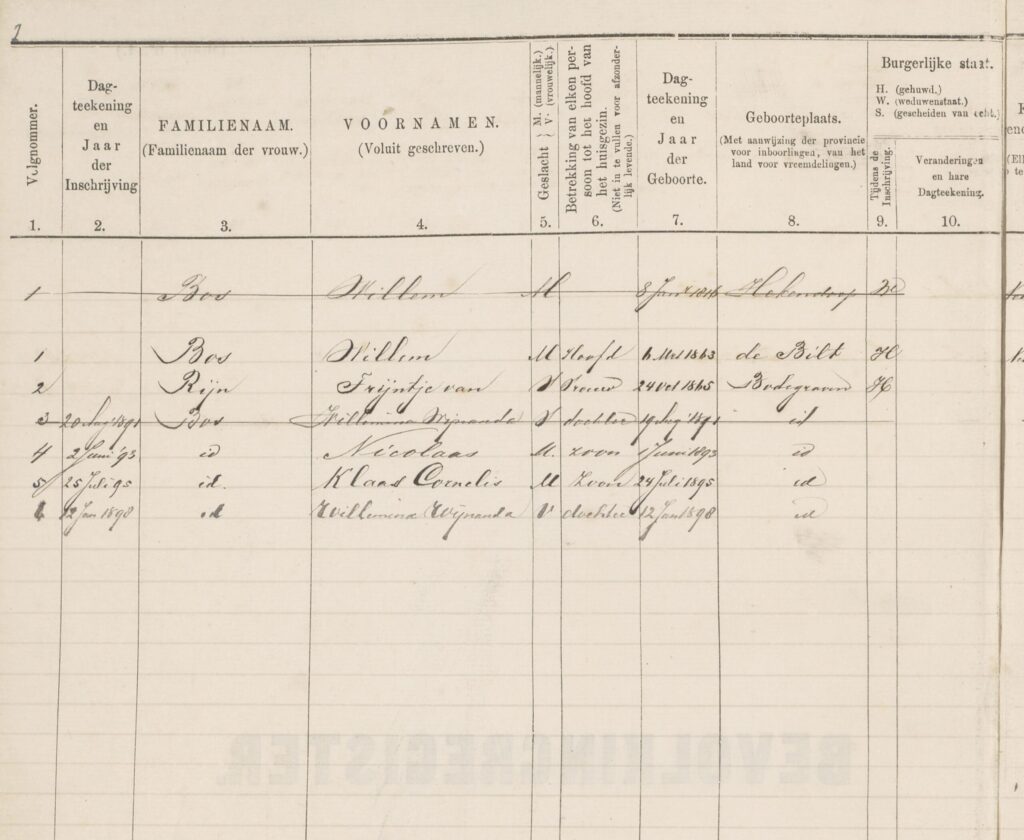 2
Volgnommer.
Dag-
teekening
en
Jaar
der
Inschrijving
FAMILIENAAM.
(Familienaam der vrouw.)
VOORNAMEN.
(Voluit geschreven.)
Geslacht { M. (mannelijk.) V. (vrouwelijk.)
Betrekking van elken per-
soon tot het hoofd van
het huisgezin.
(Niet in te vullen voor afzonder-
lijk levende.)
Dag-
teekening
en
Jaar
der
Geboorte.
Geboorteplaats.
(Met aanwijzing der provincie
voor inboorlingen, van het
land voor vreemdelingen.)
Burgerlijke staat.
H. (gehuwd.)
W. (weduwenstaat.)
S. (gescheiden van echt.)
Tijdens de
Inschrijving.
Veranderingen
en hare
Dagteekening.
1. 2. 3. 4. 5. 6. 7. 8. 9. 10.
1 Bos Willem M 8 Hekendorp
1 Bos Willem M Hoofd 6 1863 de Bilt H
2 Rijn Frijntje van V Vrouw 24 Oct 1865 Bodegraven H
3 20 Aug 1891 Bos Willemina Wijnanda V dochter 19 Aug 1891 id
4 2 Juni '93 id Nicolaas M. zoon 1 Juni 1893 id
5 25 Juli 95 id. Klaas Cornelis M Zoon 24 Juli 1895 id
6 12 Jan 1898 id Willemina Wijnanda V dochter 12 Jan 1898 id
BEVOLKINGREGISTER